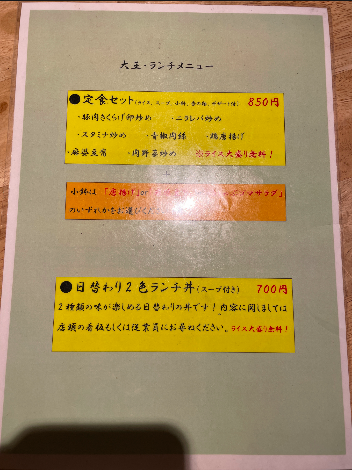 大王・ランチメニュー
●定食セット(ライス、スープ、小鉢、香の物、デザート付) 850円
・豚肉きくらげ卵炒め ・ニラレバ炒め
・スタミナ炒め ・青椒肉絲 ・鶏唐揚げ
・麻婆豆腐 ・肉野菜炒め ※ライス大盛り無料!
小鉢は「唐揚げor サラダ」
のいずれかをお選びくだ
●日替わり2色ランチ丼(スープ付き) 700円
2種類の味が楽しめる日替わりの丼です!内容に関しましては
店頭の看板もしくは従業員にお尋ねください。ライス大盛り無料!